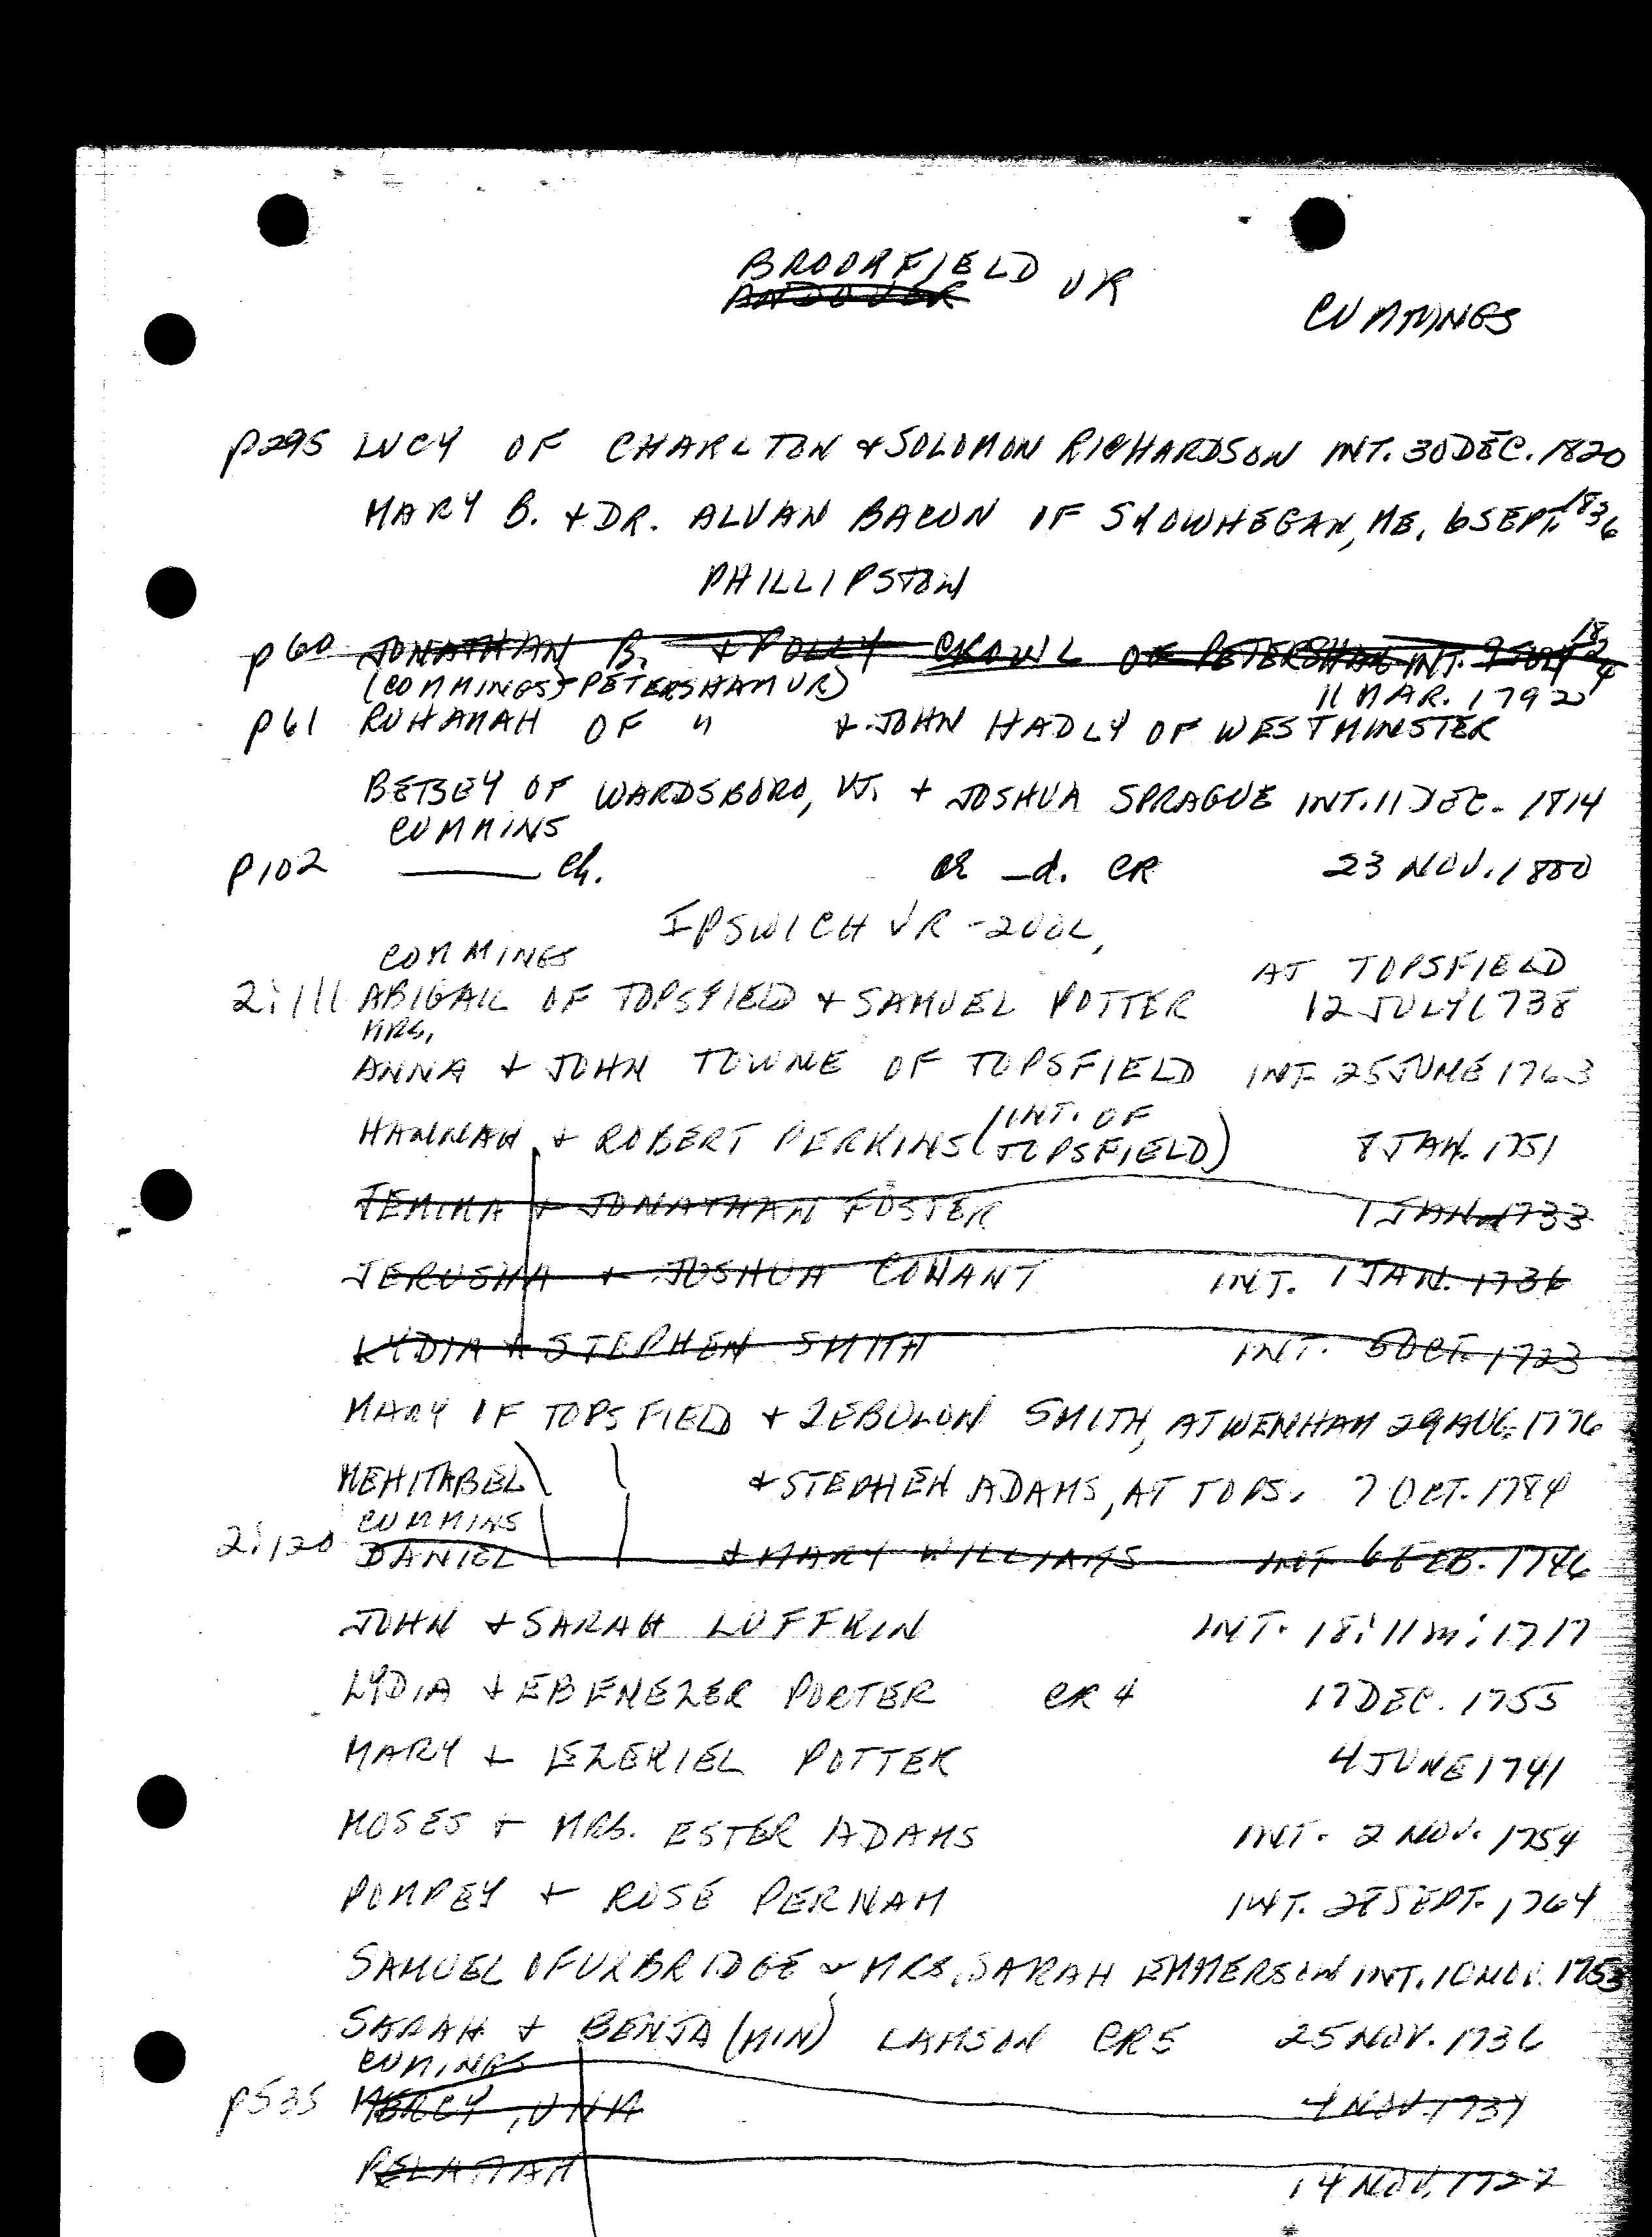 BROOKFIELD VR
ANDOVER
CUMMINGS
p295 LUCY OF CHARLTON & SOLOMON RICHARDSON INT. 30 DEC. 1820
MARY B. + DR. ALVAN BACON OF SKOWHEGAN, ME. 6 SEPT. 1836
PHILLIPSTON
p60 JONATHAN B. + POLLY CROWL OF PETERSHAM INT. 9 JULY 1824
(COMMINGS + PETERSHAM VR) 11 MAR. 1792
p61 RUHAMAH OF " + JOHN HADLY OF WESTMINSTER
BETSEY OF WARDSBORO, VT. + JOSHUA SPRAGUE INT. 11 DEC. 1814
CUMMINS
p102 ——— Ch. _d. CR 23 NOV. 1800
IPSWICH VR - 2VOL,
COMMINGS AT TOPSFIELD
2:111 ABIGAIL OF TOPSFIELD + SAMUEL POTTER 12 JULY 1738
MRS.
ANNA + JOHN TOWNE OF TOPSFIELD INT. 25 JUNE 1763
HANNAH + ROBERT PERKINS (INT. OF TOPSFIELD) 8 JAN. 1751
JEMIMA + JONATHAN FOSTER 1 JAN. 1733
JERUSHA + JOSHUA CONANT INT. 1 JAN. 1736
LYDIA + STEPHEN SMITH INT. 5 OCT. 1723
MARY OF TOPSFIELD + ZEBULON SMITH, AT WENHAM 29 AUG. 1776
MEHITABEL \ \ + STEPHEN ADAMS, AT TOPS. 7 OCT. 1784
CUMMINS
2:120 DANIEL \ \ + MARY WILLIAMS INT 6 FEB. 1746
JOHN + SARAH LUFFKIN INT. 18: 11m: 1717
LYDIA + EBENEZER PORTER CR4 17 DEC. 1755
MARY + EZEKIEL POTTER 4 JUNE 1741
MOSES + MRS. ESTER ADAMS INT. 2 NOV. 1754
POMPEY + ROSE PERNAM INT. 28 SEPT. 1764
SAMUEL OF UXBRIDGE & MRS. SARAH EMMERSON INT. 10 NOV. 1753
SARAH + BENJA (MIN) LAMSON CR5 25 NOV. 1736
CUMINGS
p535 MERCY, 4 NOV. 1737
14 NOV. 1727